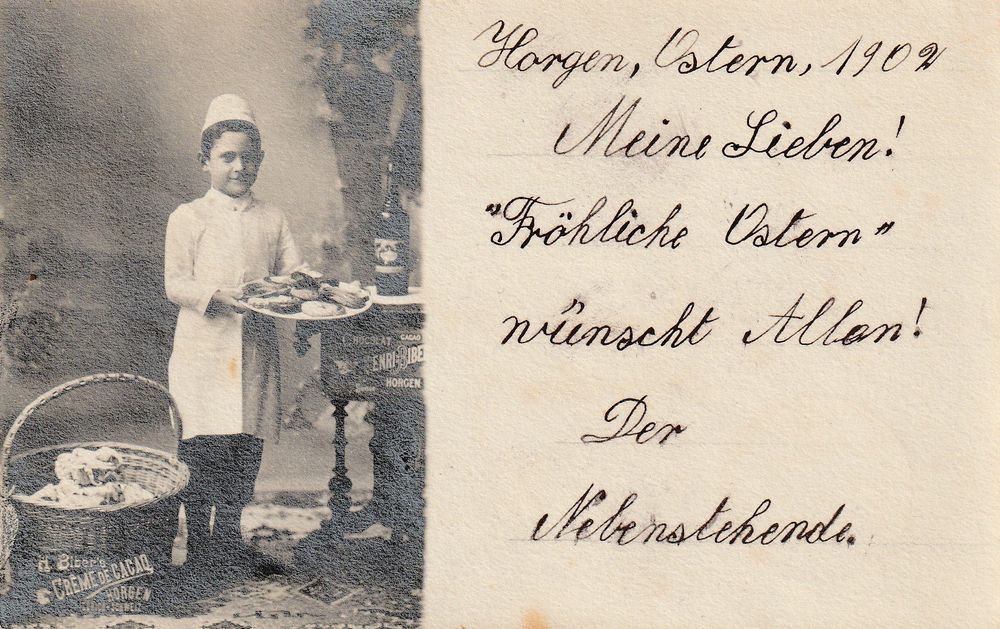 Horgen, Ostern, 1902
Meine Lieben!
"Fröhliche Ostern"
wünscht Allan!
Der
Nebenstehende.
CACAO
HORGEN
H. Biber's
CRÈME DE CACAO
HORGEN